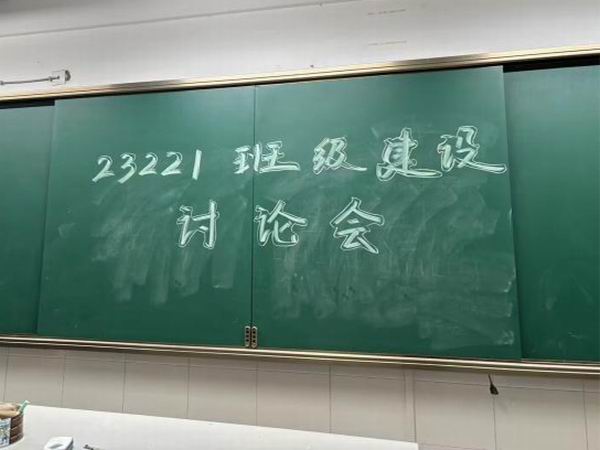 23221 班级建设
讨论会